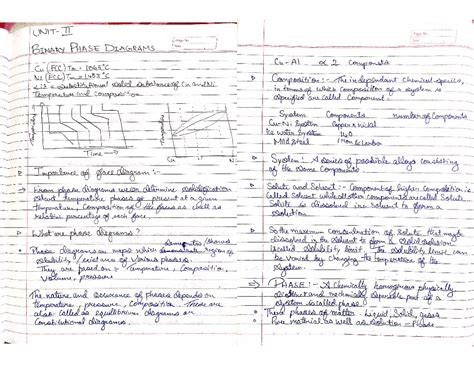 UNIT- II
BINARY PHASE DIAGRAMS
Cu (FCC) Tm = 1085°C
Ni (FCC) Tm = 1453°C
solid substance of Cu and Ni
Temperature and composition
Temperature
Time
Cu
Ni
Importance of face diagram :-
From phase diagrams we can determine
extent temperature phase at present at a given
Temperature, Composition of the phases as well as
relative percentage of each face.
What are phase diagrams ?
Phase diagrams are maps which demonstrate region of
stability / existence of various phases.
They are based on - Temperature, Composition,
Volume, pressure
The nature and occurence of phases depends on
temperature, pressure, Composition. These are
also called as equilibrium diagrams or
Constitutional diagrams.
Cu-Al 2 Components
Composition :- The independent chemical species,
in terms of which Composition of a system is
specified are called Component.
System Components number of Components
Cu-Ni System Copper & nickel
Ice water System
Mild Steel
System : A series of possible alloys consisting
of the same Components
Solute and Solvent :- Component of higher Composition is
Called Solvent while all other components are called Solute.
Solute is dissolved in Solvent to form a
Solution
So the maximum concentration of Solute that maybe
dissolved in the solvent to form a solid solution
is called Solubility limit. The solubility limit can
be varied by changing the temperature of the
System.
PHASE :- A Chemically homogenous physically
distinct and mechanically separable part of a
System is called phase.
Three phases of matter Liquid, Solid, gases
Pure material as well as solution - Phase